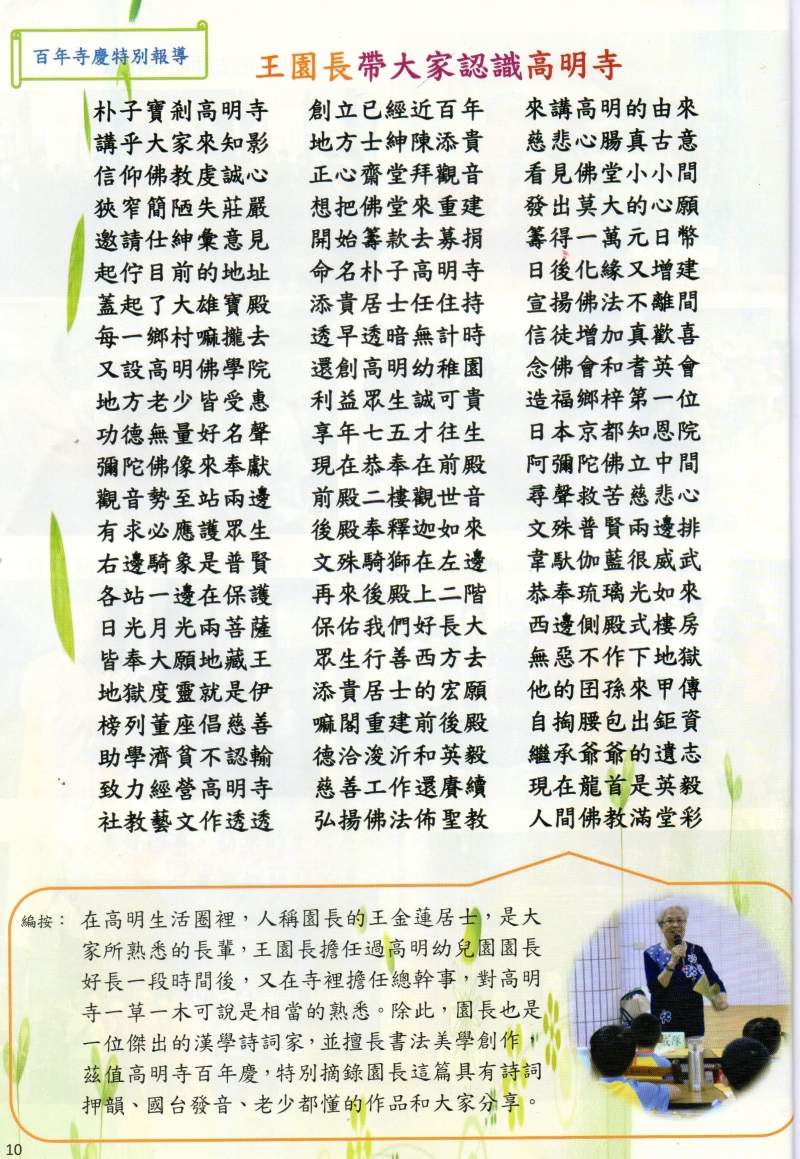 百年寺慶特別報導
王園長帶大家認識高明寺
朴子寶剎高明寺 創立已經近百年 來講高明的由來
講乎大家來知影 地方士紳陳添貴 慈悲心腸真古意
信仰佛教虔誠心 正心齋堂拜觀音 看見佛堂小小間
狹窄簡陋失莊嚴 想把佛堂來重建 發出莫大的心願
邀請仕紳彙意見 開始籌款去募捐 籌得一萬元日幣
起佇目前的地址 命名朴子高明寺 日後化緣又增建
蓋起了大雄寶殿 添貴居士任住持 宣揚佛法不離間
每一鄉村嘛攏去 透早透暗無計時 信徒增加真歡喜
又設高明佛學院 還創高明幼稚園 念佛會和耆英會
地方老少皆受惠 利益眾生誠可貴 造福鄉梓第一位
功德無量好名聲 享年七五才往生 日本京都知恩院
彌陀佛像來奉獻 現在恭奉在前殿 阿彌陀佛立中間
觀音勢至站兩邊 前殿二樓觀世音 尋聲救苦慈悲心
有求必應護眾生 後殿奉釋迦如來 文殊普賢兩邊排
右邊騎象是普賢 文殊騎獅在左邊 韋馱伽藍很威武
各站一邊在保護 再來後殿上二階 恭奉琉璃光如來
日光月光兩菩薩 保佑我們好長大 西邊側殿式樓房
皆奉大願地藏王 眾生行善西方去 無惡不作下地獄
地獄度靈就是伊 添貴居士的宏願 他的囝孫來甲傳
榜列董座倡慈善 嘛閣重建前後殿 自掏腰包出鉅資
助學濟貧不認輸 德洽浚沂和英毅 繼承爺爺的遺志
致力經營高明寺 慈善工作還賡續 現在龍首是英毅
社教藝文作透透 弘揚佛法佈聖教 人間佛教滿堂彩
編按： 在高明生活圈裡，人稱園長的王金蓮居士，是大
家所熟悉的長輩，王園長擔任過高明幼兒園園長
好長一段時間後，又在寺裡擔任總幹事，對高明
寺一草一木可說是相當的熟悉。除此，園長也是
一位傑出的漢學詩詞家，並擅長書法美學創作，
茲值高明寺百年慶，特別摘錄園長這篇具有詩詞
押韻、國台發音、老少都懂的作品和大家分享。
10